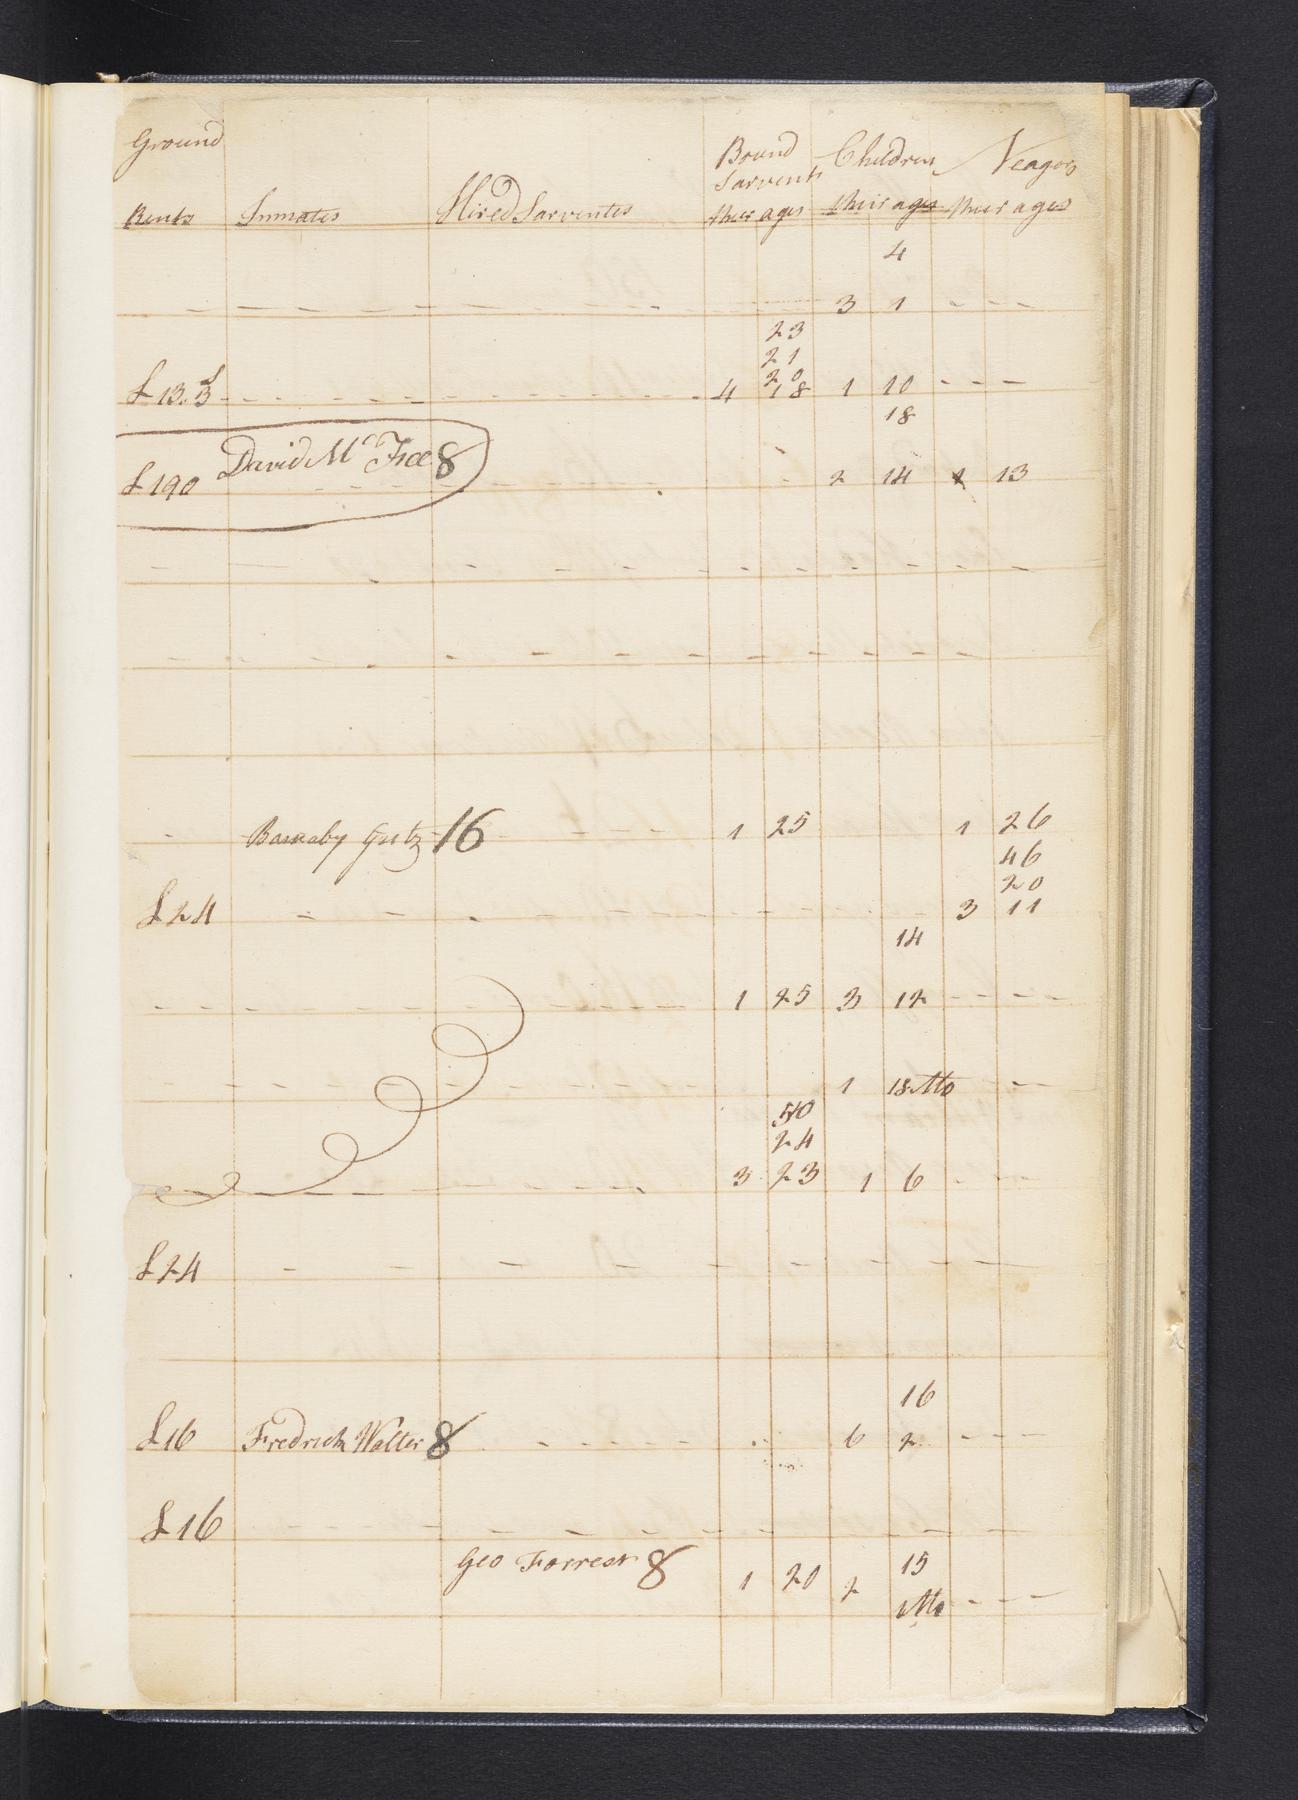 Ground
Rents Inmates Hired Sarventes Bound Sarvents their ages Children their ages Neagors their ages
4
3 1
23
21
20
£13.3s 4 18 1 10
18
£190 David Mc Fee 8 2 14 1 13
Barnaby Gutz 16 1 25 1 26
46
20
£24 3 11
14
1 25 3 12
1 18 Mo
50
24
3 23 1 6
£24
16
£16 Fredrick Walter 8 6 2
£16
Geo Forrest 8 1 20 2 15
1 Mo